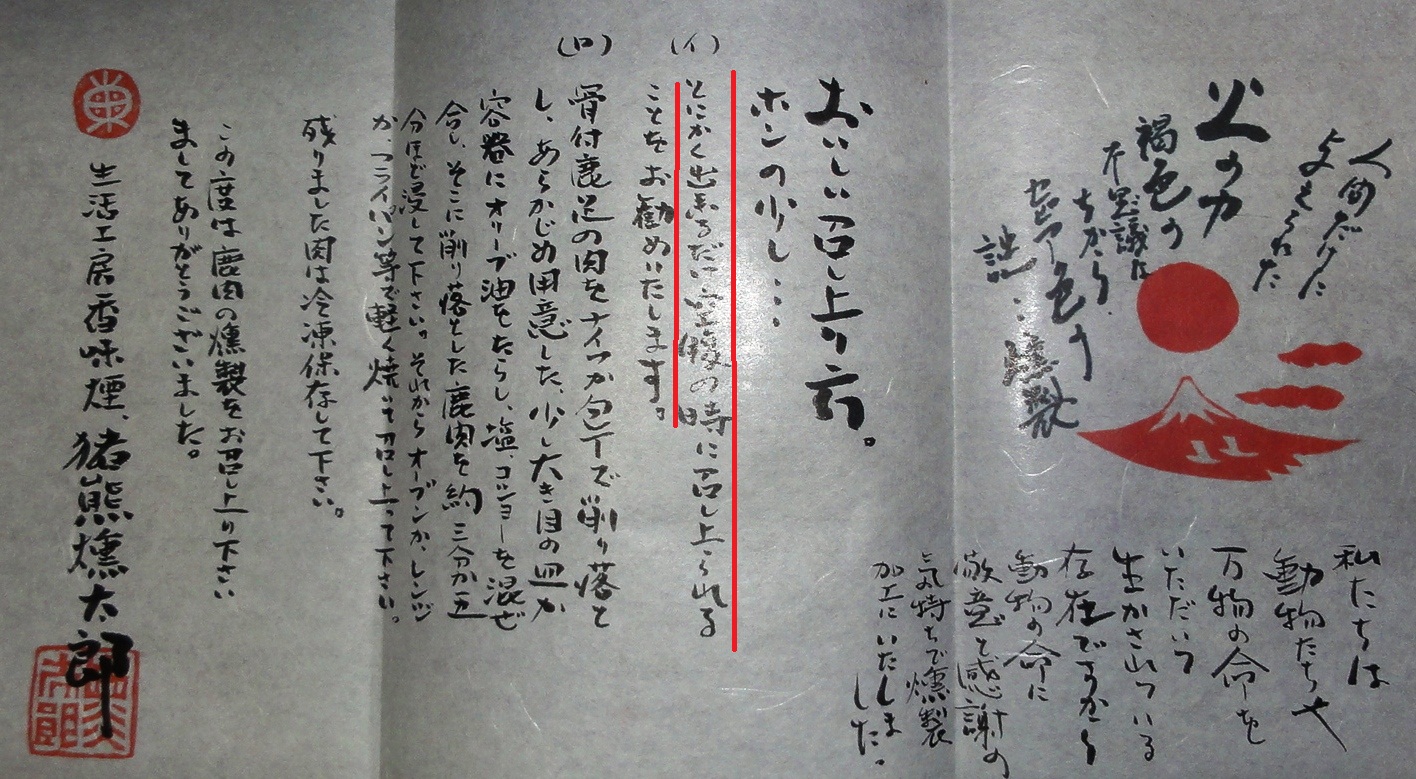 人間だけに
与えられた
火の力
褐色の
不思議な
ちから
セピア色の
謎…
燻製
私たちは
動物たちや
万物の命を
いただいて
生かされている
存在ですから
動物の命に
敬意と感謝の
気持ちで燻製
加工にいたしま
した。
おいしい召し上り方。
ホンの少し…
(イ) とにかく出来るだけ空腹の時に召し上られる
ことをお勧めいたします。
(ロ) 骨付鹿足の肉をナイフか包丁で削り落と
し、あらかじめ用意した、少し大き目の皿か
容器にオリーブ油をたらし、塩、コショーを混ぜ
合し、そこに削り落とした鹿肉を約三分か五
分ほど浸して下さい。それからオーブンか、レンジ
か、フライパン等で軽く焼いて召し上って下さい。
残りました肉は冷凍保存して下さい。
この度は鹿肉の燻製をお召し上り下さい
ましてありがとうございました。
生活工房香味煙、猪熊燻太郎